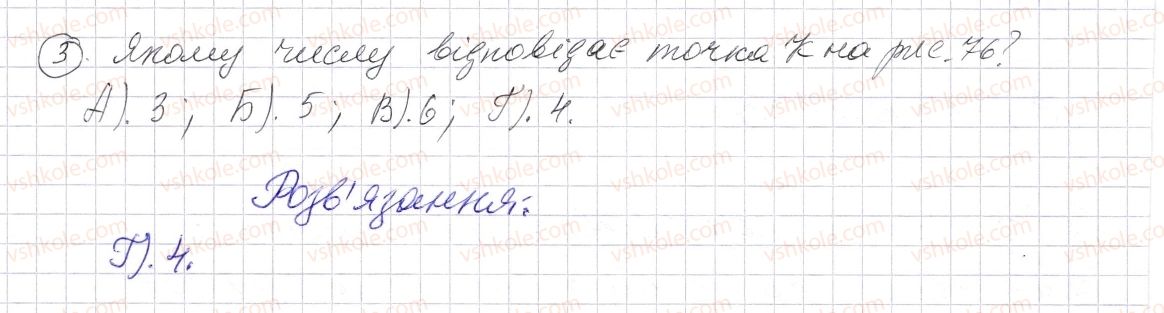 3. Якому числу відповідає точка К на рис. 76?
А). 3; Б). 5; В). 6; Г). 4.
Розв'язання:
Г). 4.